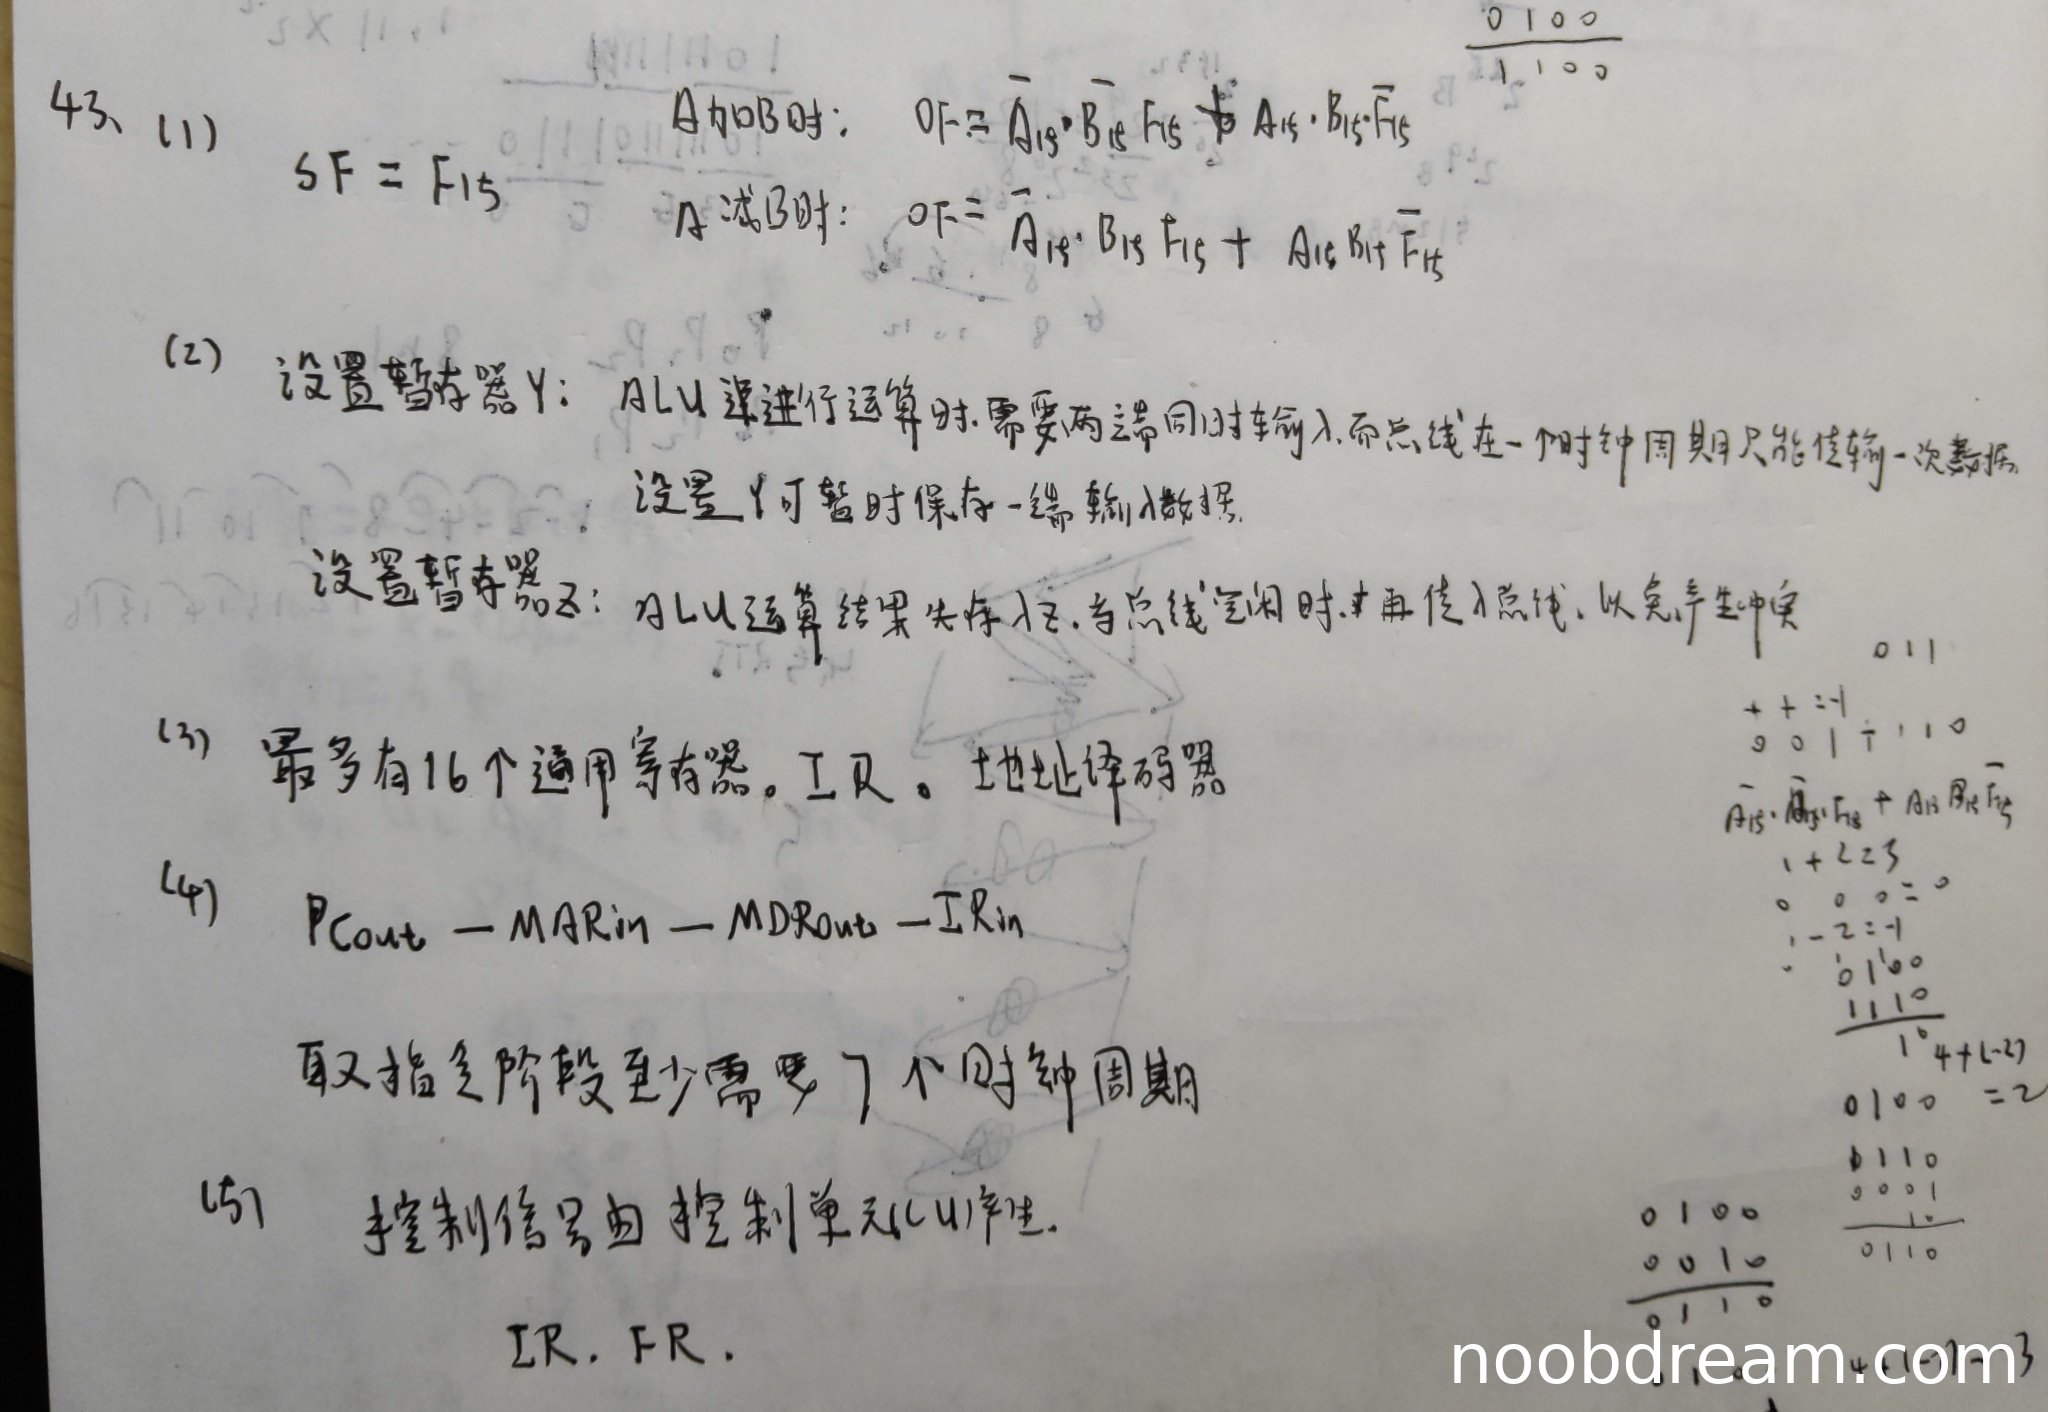 0 1 0 0
1 1 0 0
43、(1)
SF = F15
A加B时: OF = A̅15·B̅15 F15 + A15·B15·F̅15
A减B时: OF = A̅15·B15 F15 + A15 B15 F̅15
(2) 设置暂存器Y: ALU 进行运算时.需要两端同时输入.而总线在一个时钟周期只能传输一次数据.
设置Y可暂时保存一端输入数据.
设置暂存器Z: ALU运算结果先存入Z.等总线空闲时.再传入总线.以免产生冲突
(3) 最多有16个通用寄存器。IR。地址译码器
(4) PCout — MARin — MDRout — IRin
取指令阶段至少需要7个时钟周期
(5) 控制信号由控制单元(CU)产生.
IR. FR.
0 1 1
+ + = -1
1 + 2 = 3
0 0 0 = 0
1 - 2 = -1
0 1 0 0
1 1 1 0
1 0
4+(-2)
= 2
0 1 0 0
0 1 1 0
0 0 0 1
1 0
0 1 1 0
0 1 0 0
0 0 1 0
0 1 1 0
noobdream.com